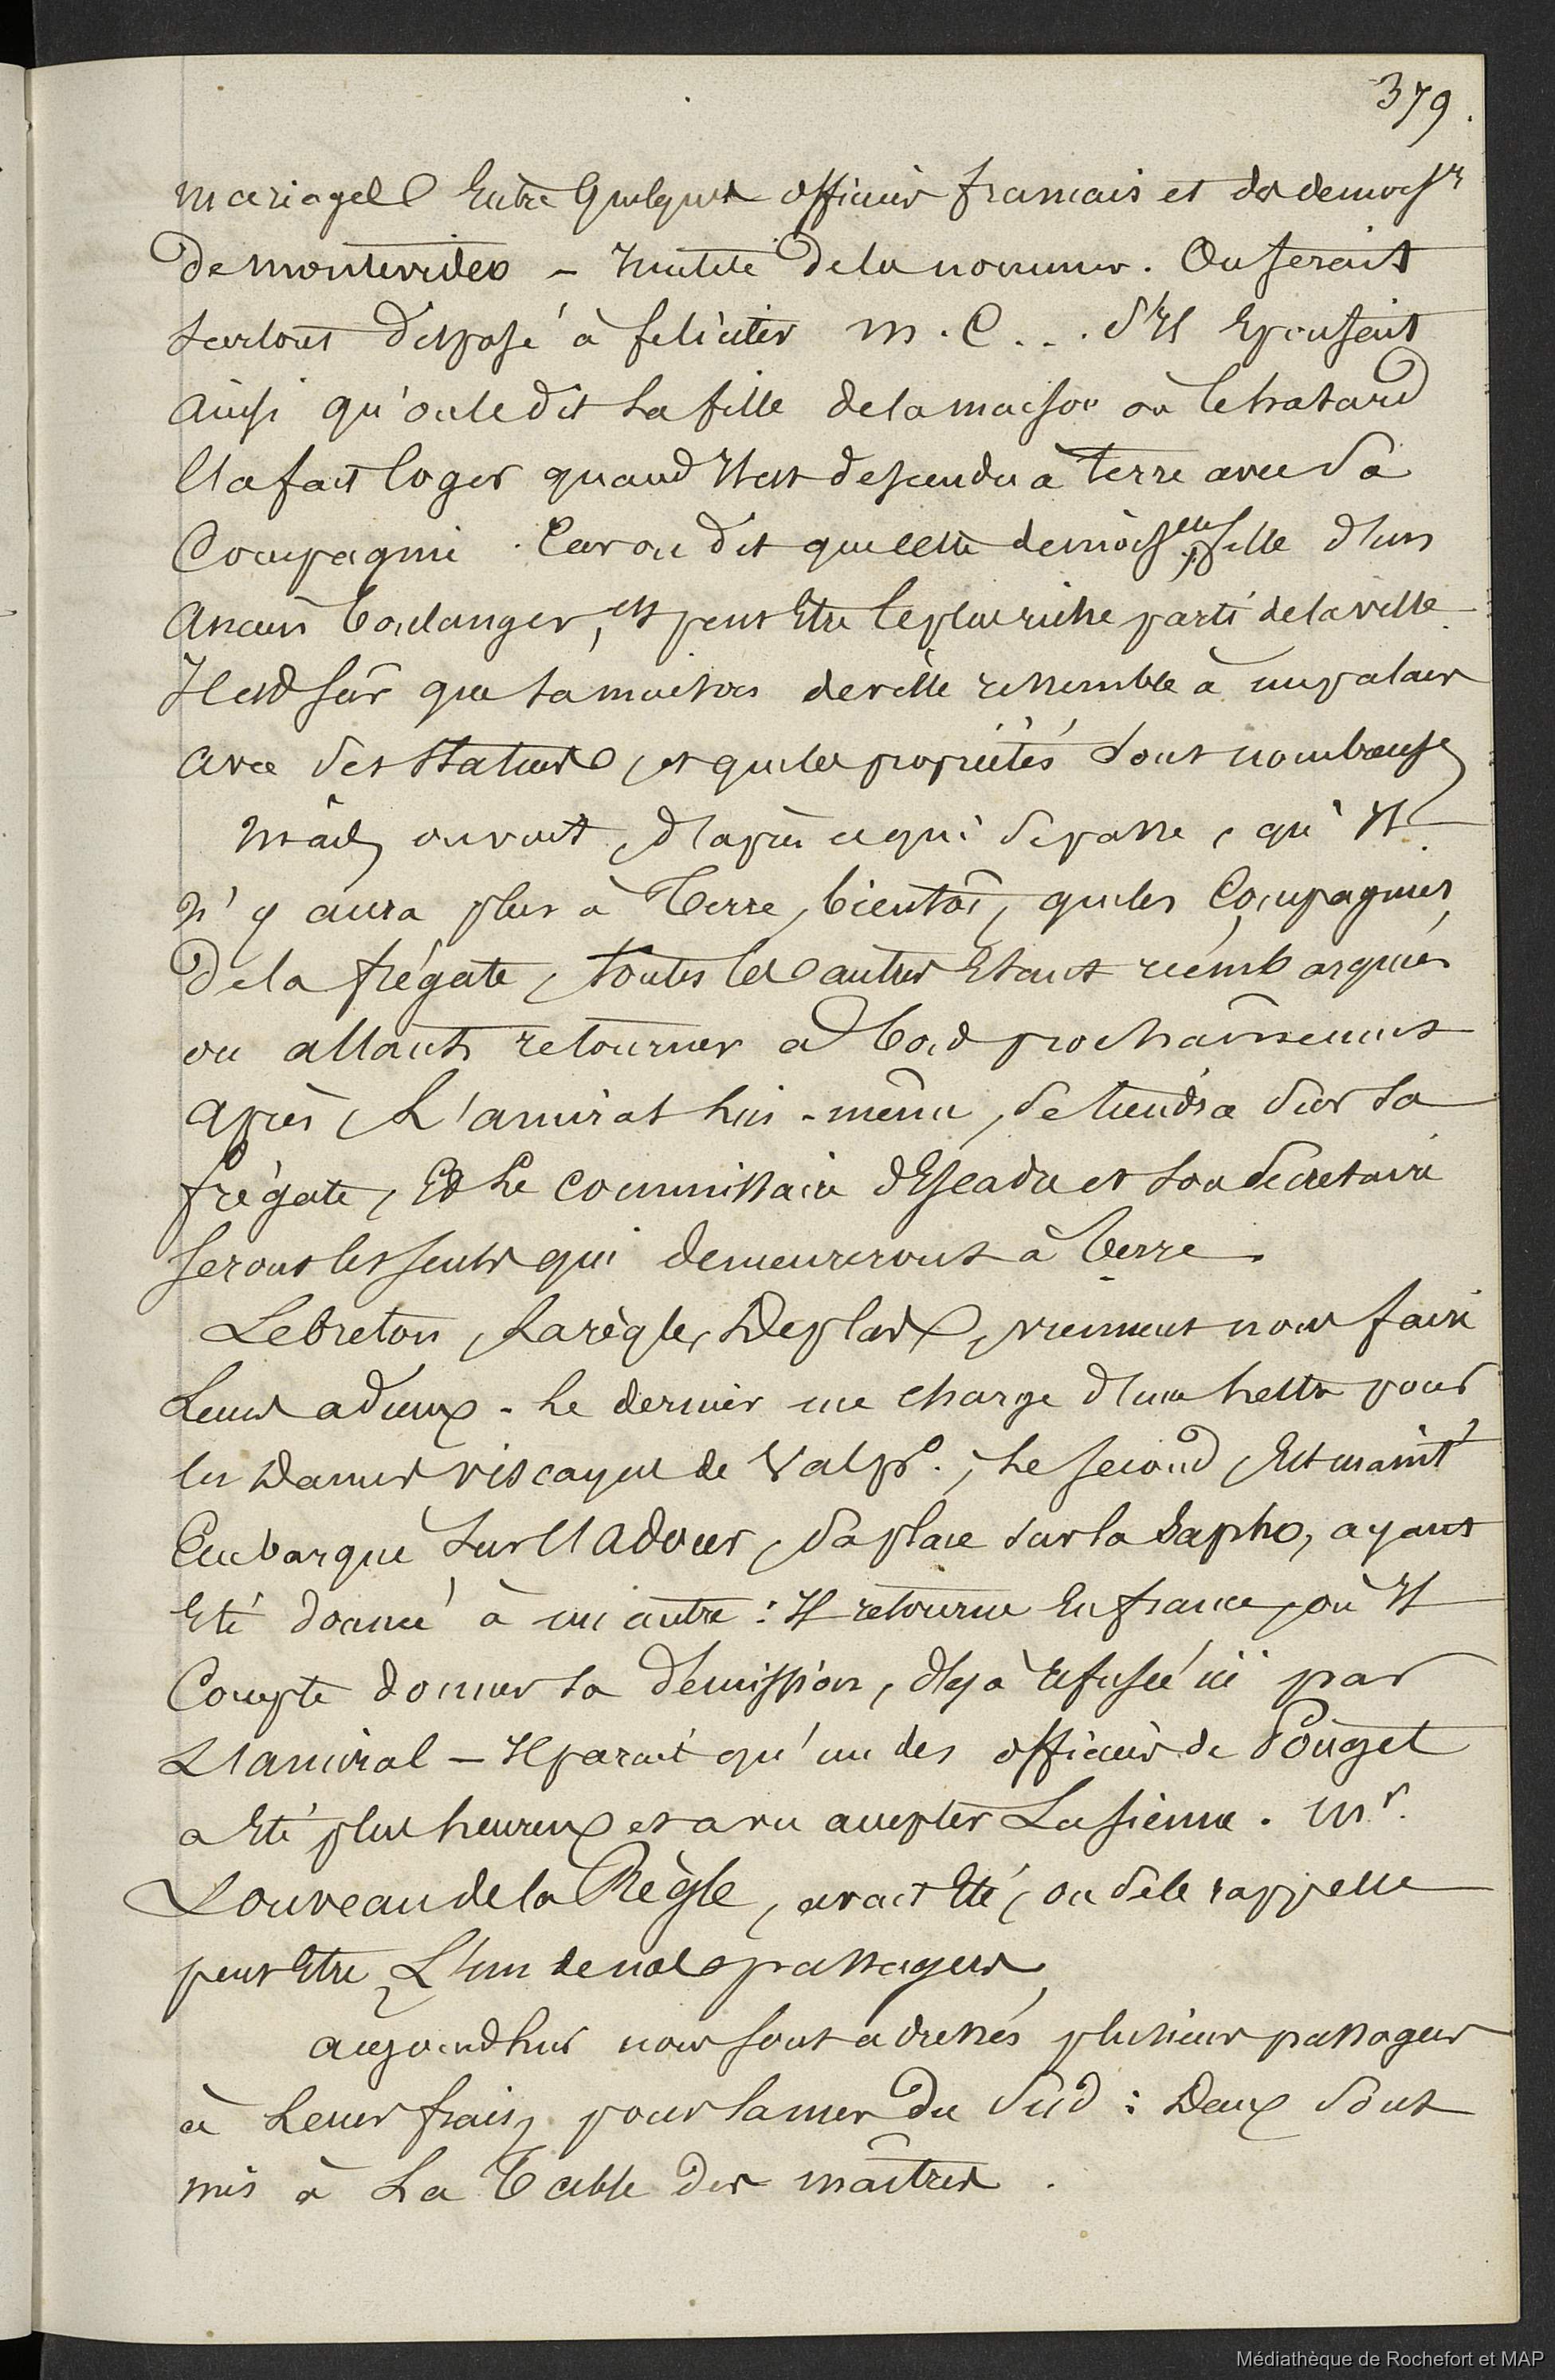 379.
mariages Entre Quelques officiers francais et des demoislles
de montevideo – Inutile de la nommer. On serait
surtout disposé à feliciter M. C... S'Il Epousait
Ainsi qu'on le dit La fille de la maison où le hasard
L'a fait loger quand Il est descendu à terre avec Sa
Compagnie. Car on dit que cette demoiselle, fille d'un
Ancien boulanger, est peut Etre le plus riche parti de la ville
Il est sûr que sa maison de ville ressemble à un palais
avec des statues, et que les propriétés sont nombreuses
Mais on voit, d'après ce qui se passe, qu'Il
n'y aura plus à Terre, bientôt, que les Compagnies
de la frégate, toutes les autres Etant réembarquées
ou allant retourner à bord prochainement
après, L'amiral lui-même, se tiendra sur sa
frégate, Et Le commissaire d'Escadre et son Secretaire
seront les seuls qui demeureront à terre.
Lebreton, Larègle, Desplas, viennent nous faire
Leurs adieux. Le dernier me charge d'une lettre pour
les Dames viscayes de Valpo.; Le second, Est maint
Embarqué sur l'Adour, Sa place sur la Sapho, ayant
Eté donnée à un autre: Il retourne En france, où Il
Compte donner sa démission, déjà refusée ici par
L'amiral – Il parait qu'un des officiers de Pouget
a Eté plus heureux et a vu accepter La sienne. Mr.
Louveau de la Règle, avait Eté, on se le rappelle
peut Etre, L'un de nos passagers,
aujourdhui nous sont adressés plusieurs passagers
à Leurs frais, pour la mer du Sud: Deux sont
mis à La Table des maîtres.
Médiathèque de Rochefort et MAP